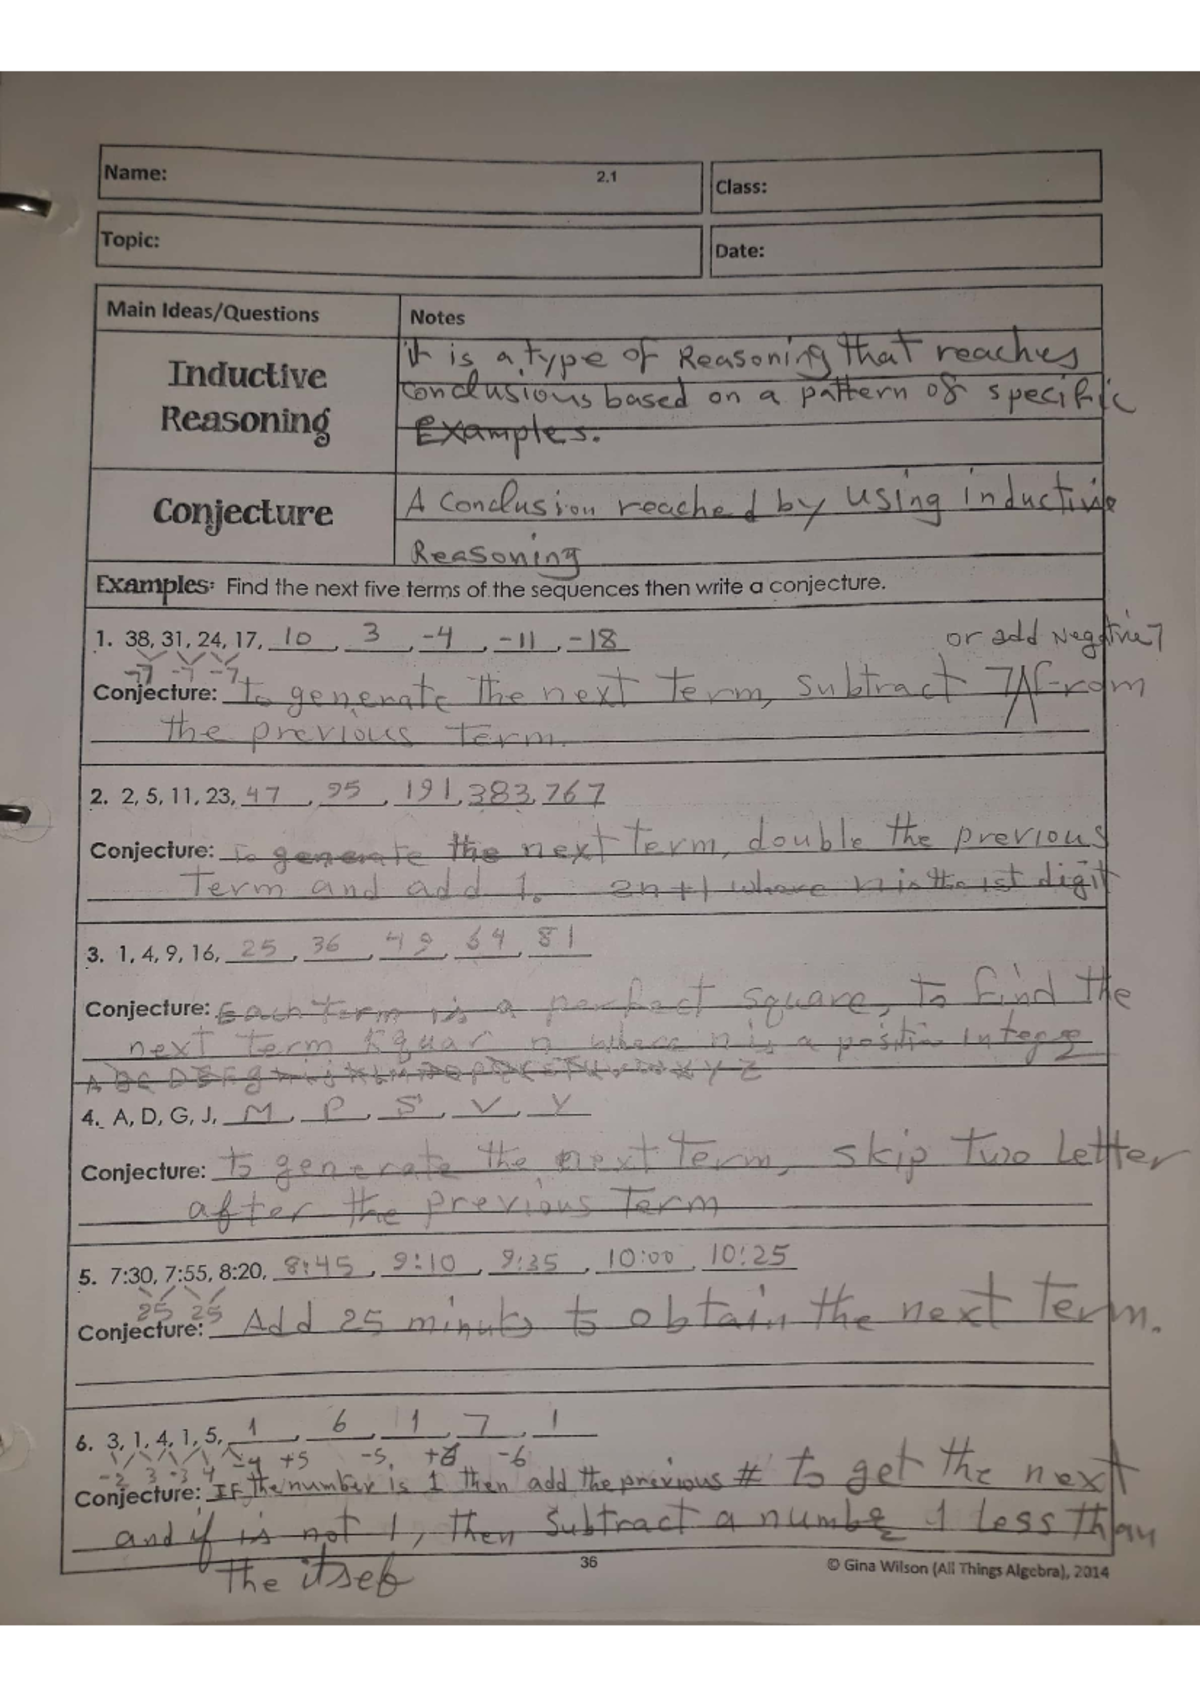 Name: 2.1 Class:
Topic: Date:
Main Ideas/Questions Notes
Inductive Reasoning
it is a type of Reasoning that reaches
conclusions based on a pattern of specific
Examples.
Conjecture
A Conclusion reached by using inductive
Reasoning
Examples: Find the next five terms of the sequences then write a conjecture.
1. 38, 31, 24, 17, 10, 3, -4, -11, -18
or add Negative 7
-7 -7 -7
Conjecture: to generate the next term, subtract 7 from
the previous term.
2. 2, 5, 11, 23, 47, 95, 191, 383, 767
Conjecture: To generate the next term, double the previous
term and add 1. 2n+1 where n is the 1st digit
3. 1, 4, 9, 16, 25, 36, 49, 64, 81
Conjecture: Each term is a perfect square, to find the
next term n where n is a
4. A, D, G, J, M, P, S, V, Y
Conjecture: to generate the next term, skip two letter
after the previous term
5. 7:30, 7:55, 8:20, 8:45, 9:10, 9:35, 10:00, 10:25
25 25
Conjecture: Add 25 to obtain the next term.
6. 3, 1, 4, 1, 5, 1, 6, 1, 7, 1
-2 3 -3 4 -4 +5 -5, -6
Conjecture: IF the number is 1 then add the previous # to get the next
and if is not 1, then subtract a 1 less than
the
36
© Gina Wilson (All Things Algebra), 2014